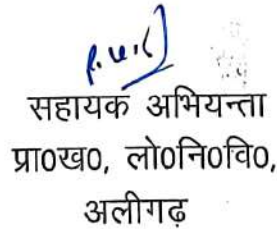 सहायक अभियन्ता
प्रा०ख०, लो०नि०वि०,
अलीगढ़